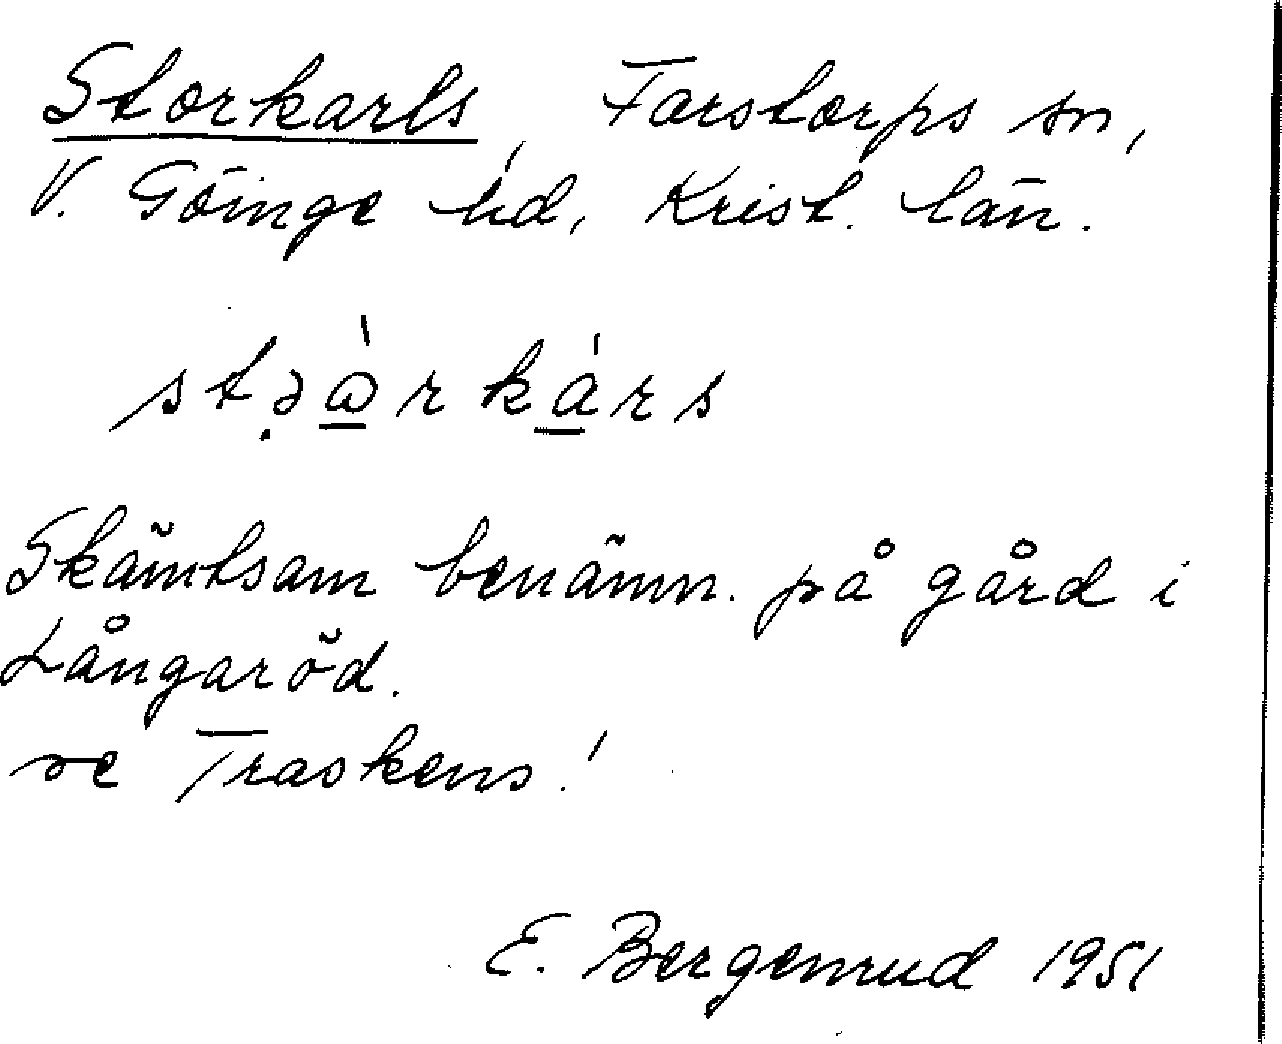 Storkarls, Farstorps sn,
V. Göinge hd, Krist. län.
stə̣ὼrkárs
Skämtsam benämn. på gård i
Långaröd.
se Traskens!
E. Bergenrud 1951